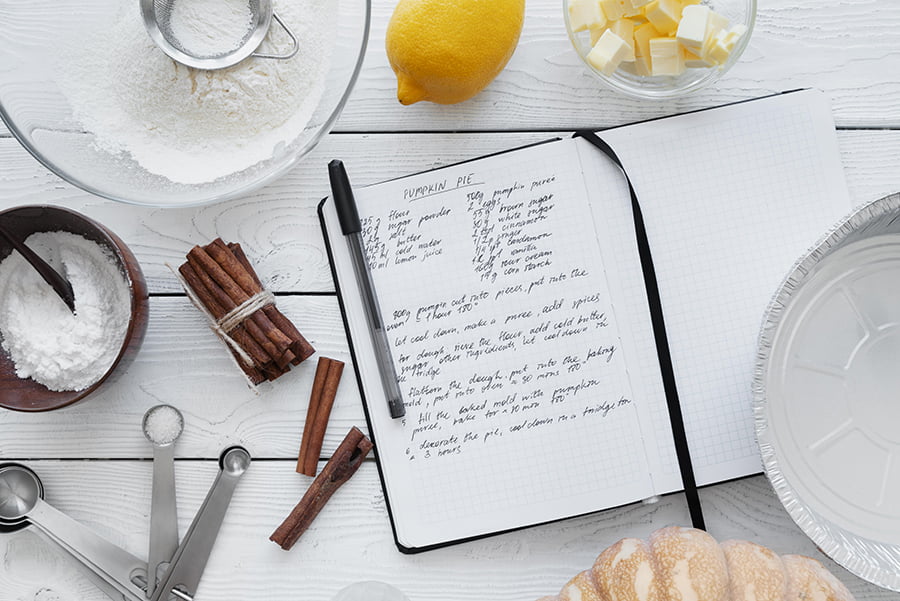 PUMPKIN PIE
225 g flour
30 g sugar powder
salt
145 g butter
45 ml cold water
10 ml lemon juice
500g pumpkin pureé
2 eggs
55g brown sugar
30g white sugar
cinnamon
1/2g ginger
1/4 cardamom
vanilla
160g sour cream
15g corn starch
800g pumpkin cut into pieces, put into the
oven 1 hour 180°
let cool down, make a puree, add spices
for dough, sieve the flour, add cold butter,
sugar, other ingredients, let cool down in
the fridge
flatten the dough, put into the baking
mold, put into oven ≈ 30 mins 180°
5 fill the baked mold with pumpkin
puree, bake for 20 min 180°
6 decorate the pie, cool down in a fridge for
≈ 3 hours